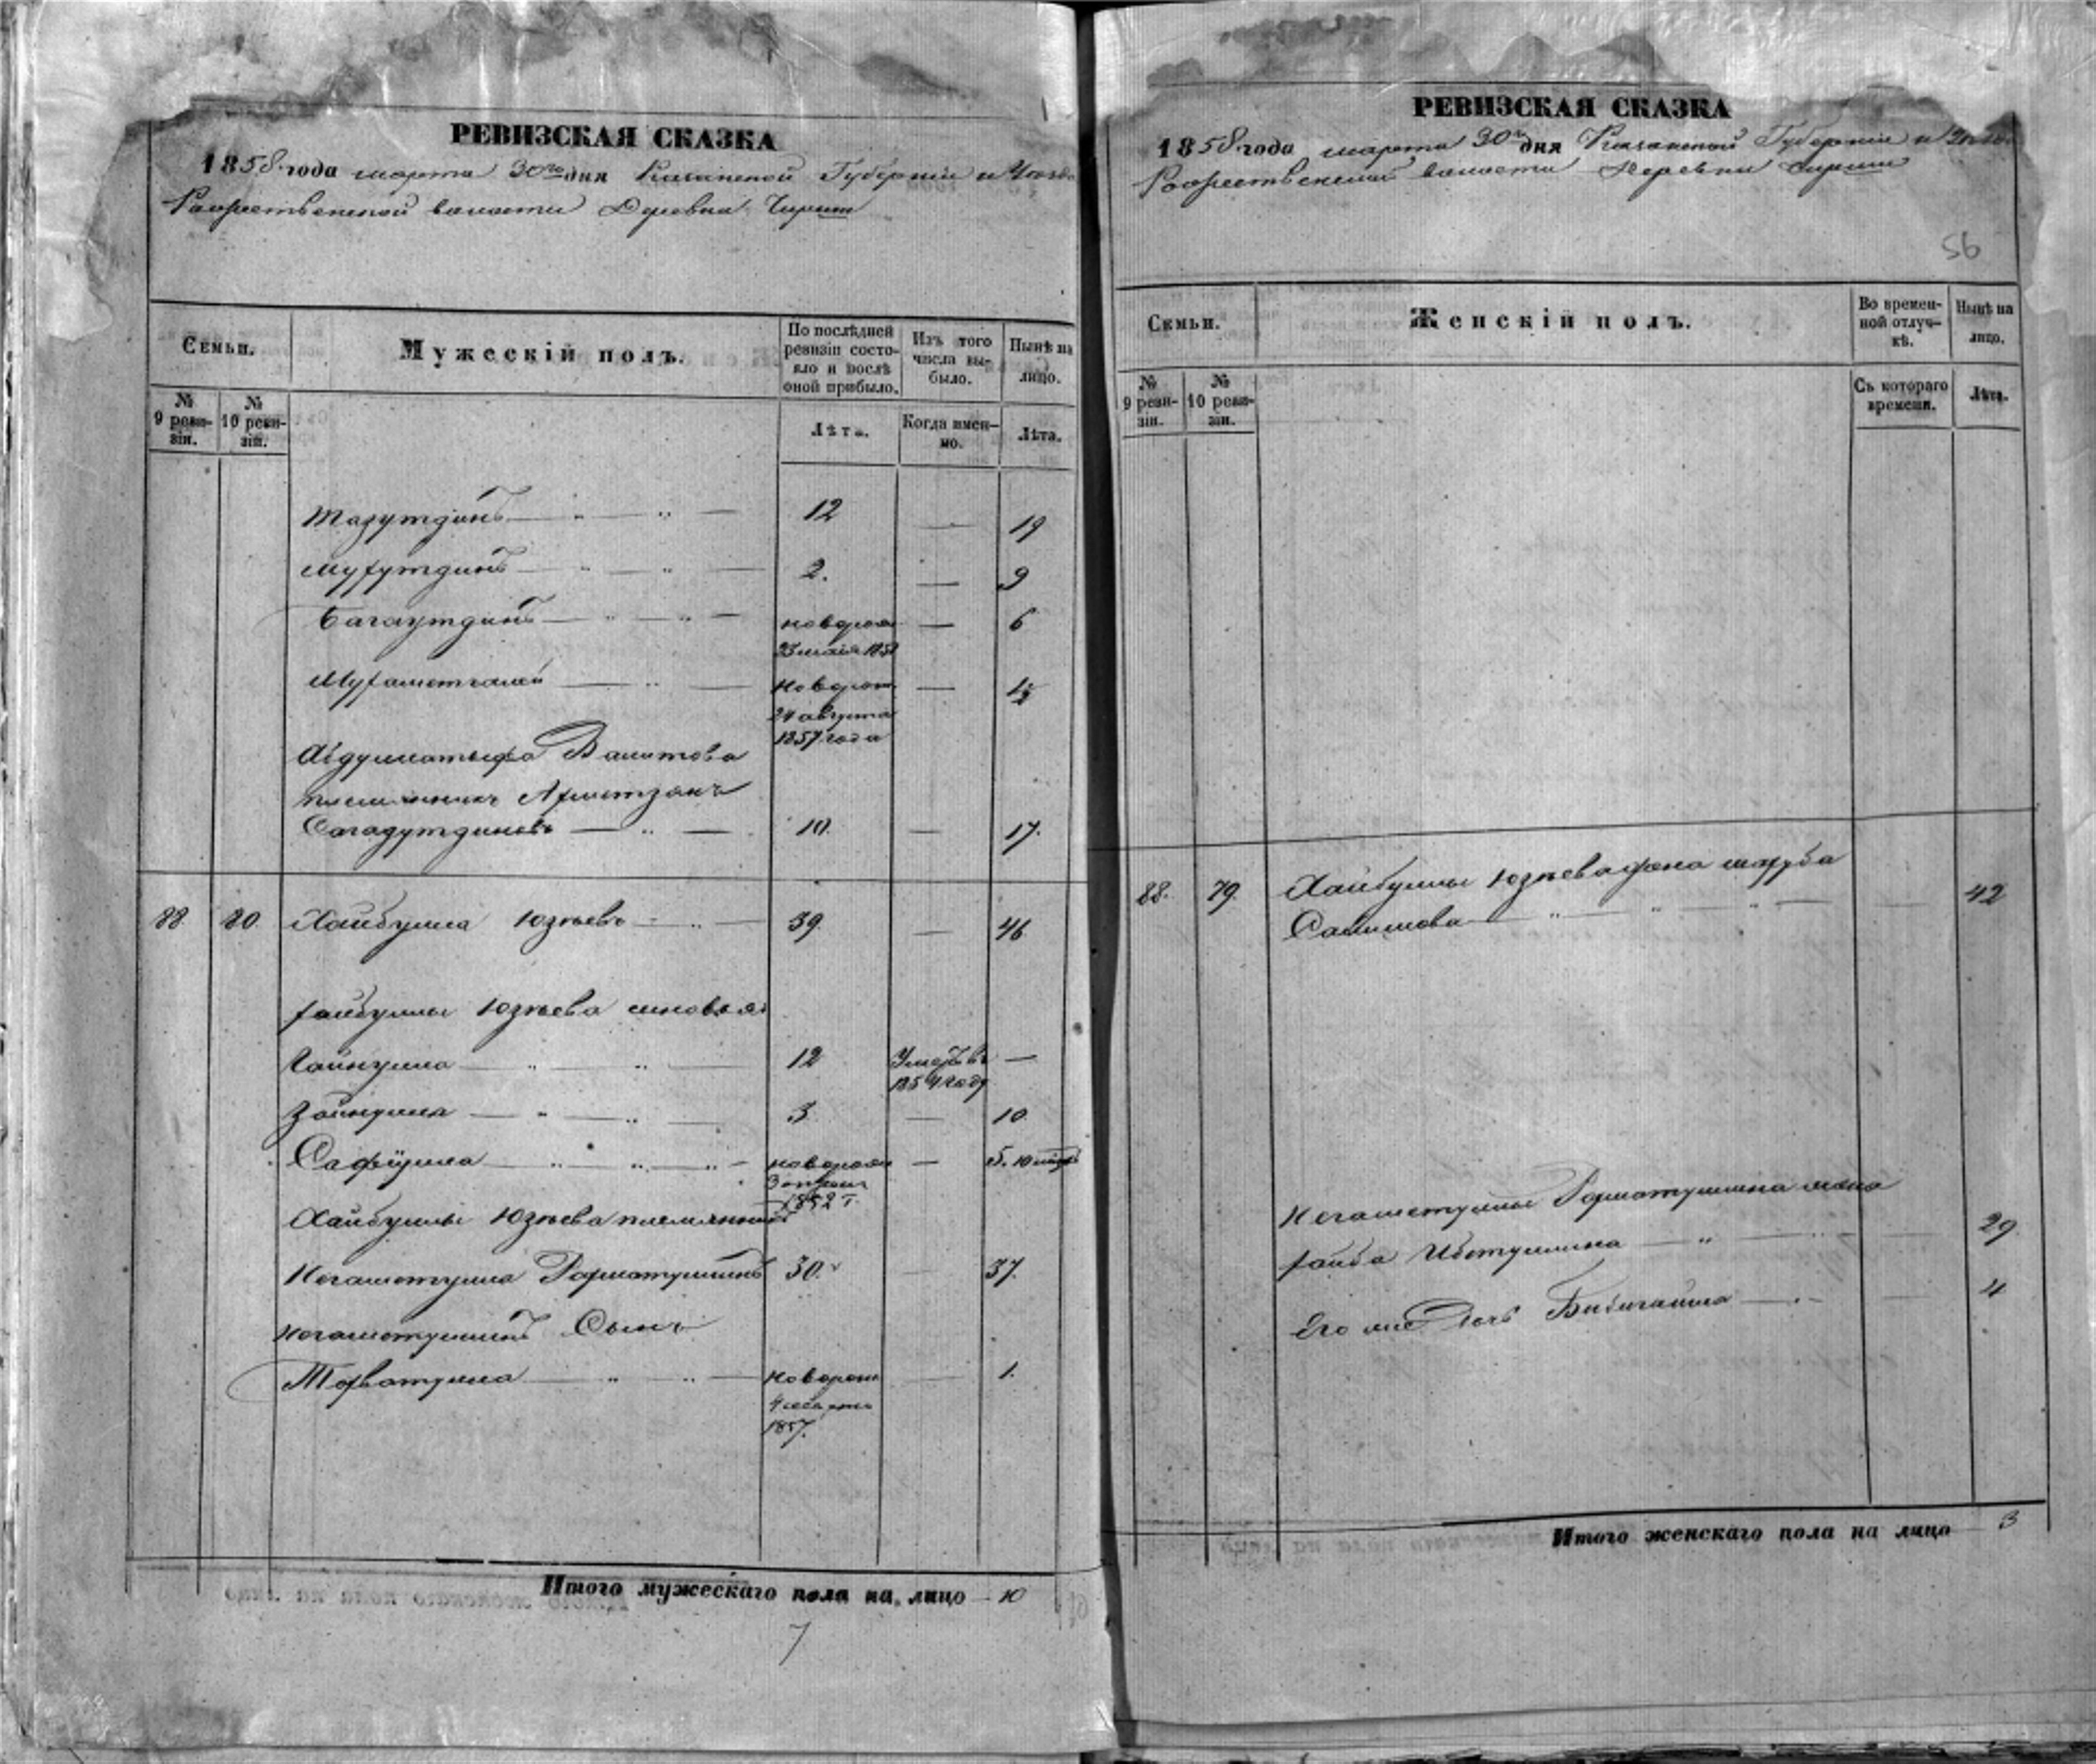 РЕВИЗСКАЯ СКАЗКА
1858 года марта 30го дня Казанской Губернии и Уезда
Рожественской волости Деревни Чирши
Семьи.
Мужескій полъ.
По послѣдней ревизіи состояло и послѣ оной прибыло.
Изъ того числа выбыло.
Нынѣ на лицо.
№ 9 ревизіи.
№ 10 ревизіи.
Лѣта.
Когда именно.
Лѣта.
Тазутдинъ 12 — 19
Мухутдинъ 2. — 9
Багаутдинъ новорож — 6
23 маія
Мухаметгалей новорож — 1/2
24 августа
1857 года
Абдуллатыфа Валитова
племянникъ Ахметзянъ
Сагадутдиновъ 10. — 17.
88. 80. Хайбулла Юзѣевъ 39. — 46
Хайбуллы Юзѣева сыновья
Гайнулла 12 Умеръ въ —
1854 году
Зайнулла 3 — 10
Сафіулла новорож — 5. 10 мѣс
3 1852 г.
Хайбуллы Юзѣева племянникъ
Негаметулла Рахматуллинъ 30. — 37.
Негаметуллинъ Сынъ
новорож — 1.
4
1857.
Итого мужескаго пола на лицо 10
7
РЕВИЗСКАЯ СКАЗКА
1858 года марта 30го дня Казанской Губернии и
Рожественской волости Деревни Чирши
56
Семьи.
Женскій полъ.
Во временной отлучкѣ.
Нынѣ на лицо.
№ 9 ревизіи.
№ 10 ревизіи.
Съ котораго времени.
Лѣта.
88. 79. Хайбуллы Юзѣева жена
Салимова — 42
Негаметуллы Рахматуллина жена
29.
Его же Дочь — 4
Итого женскаго пола на лицо 3